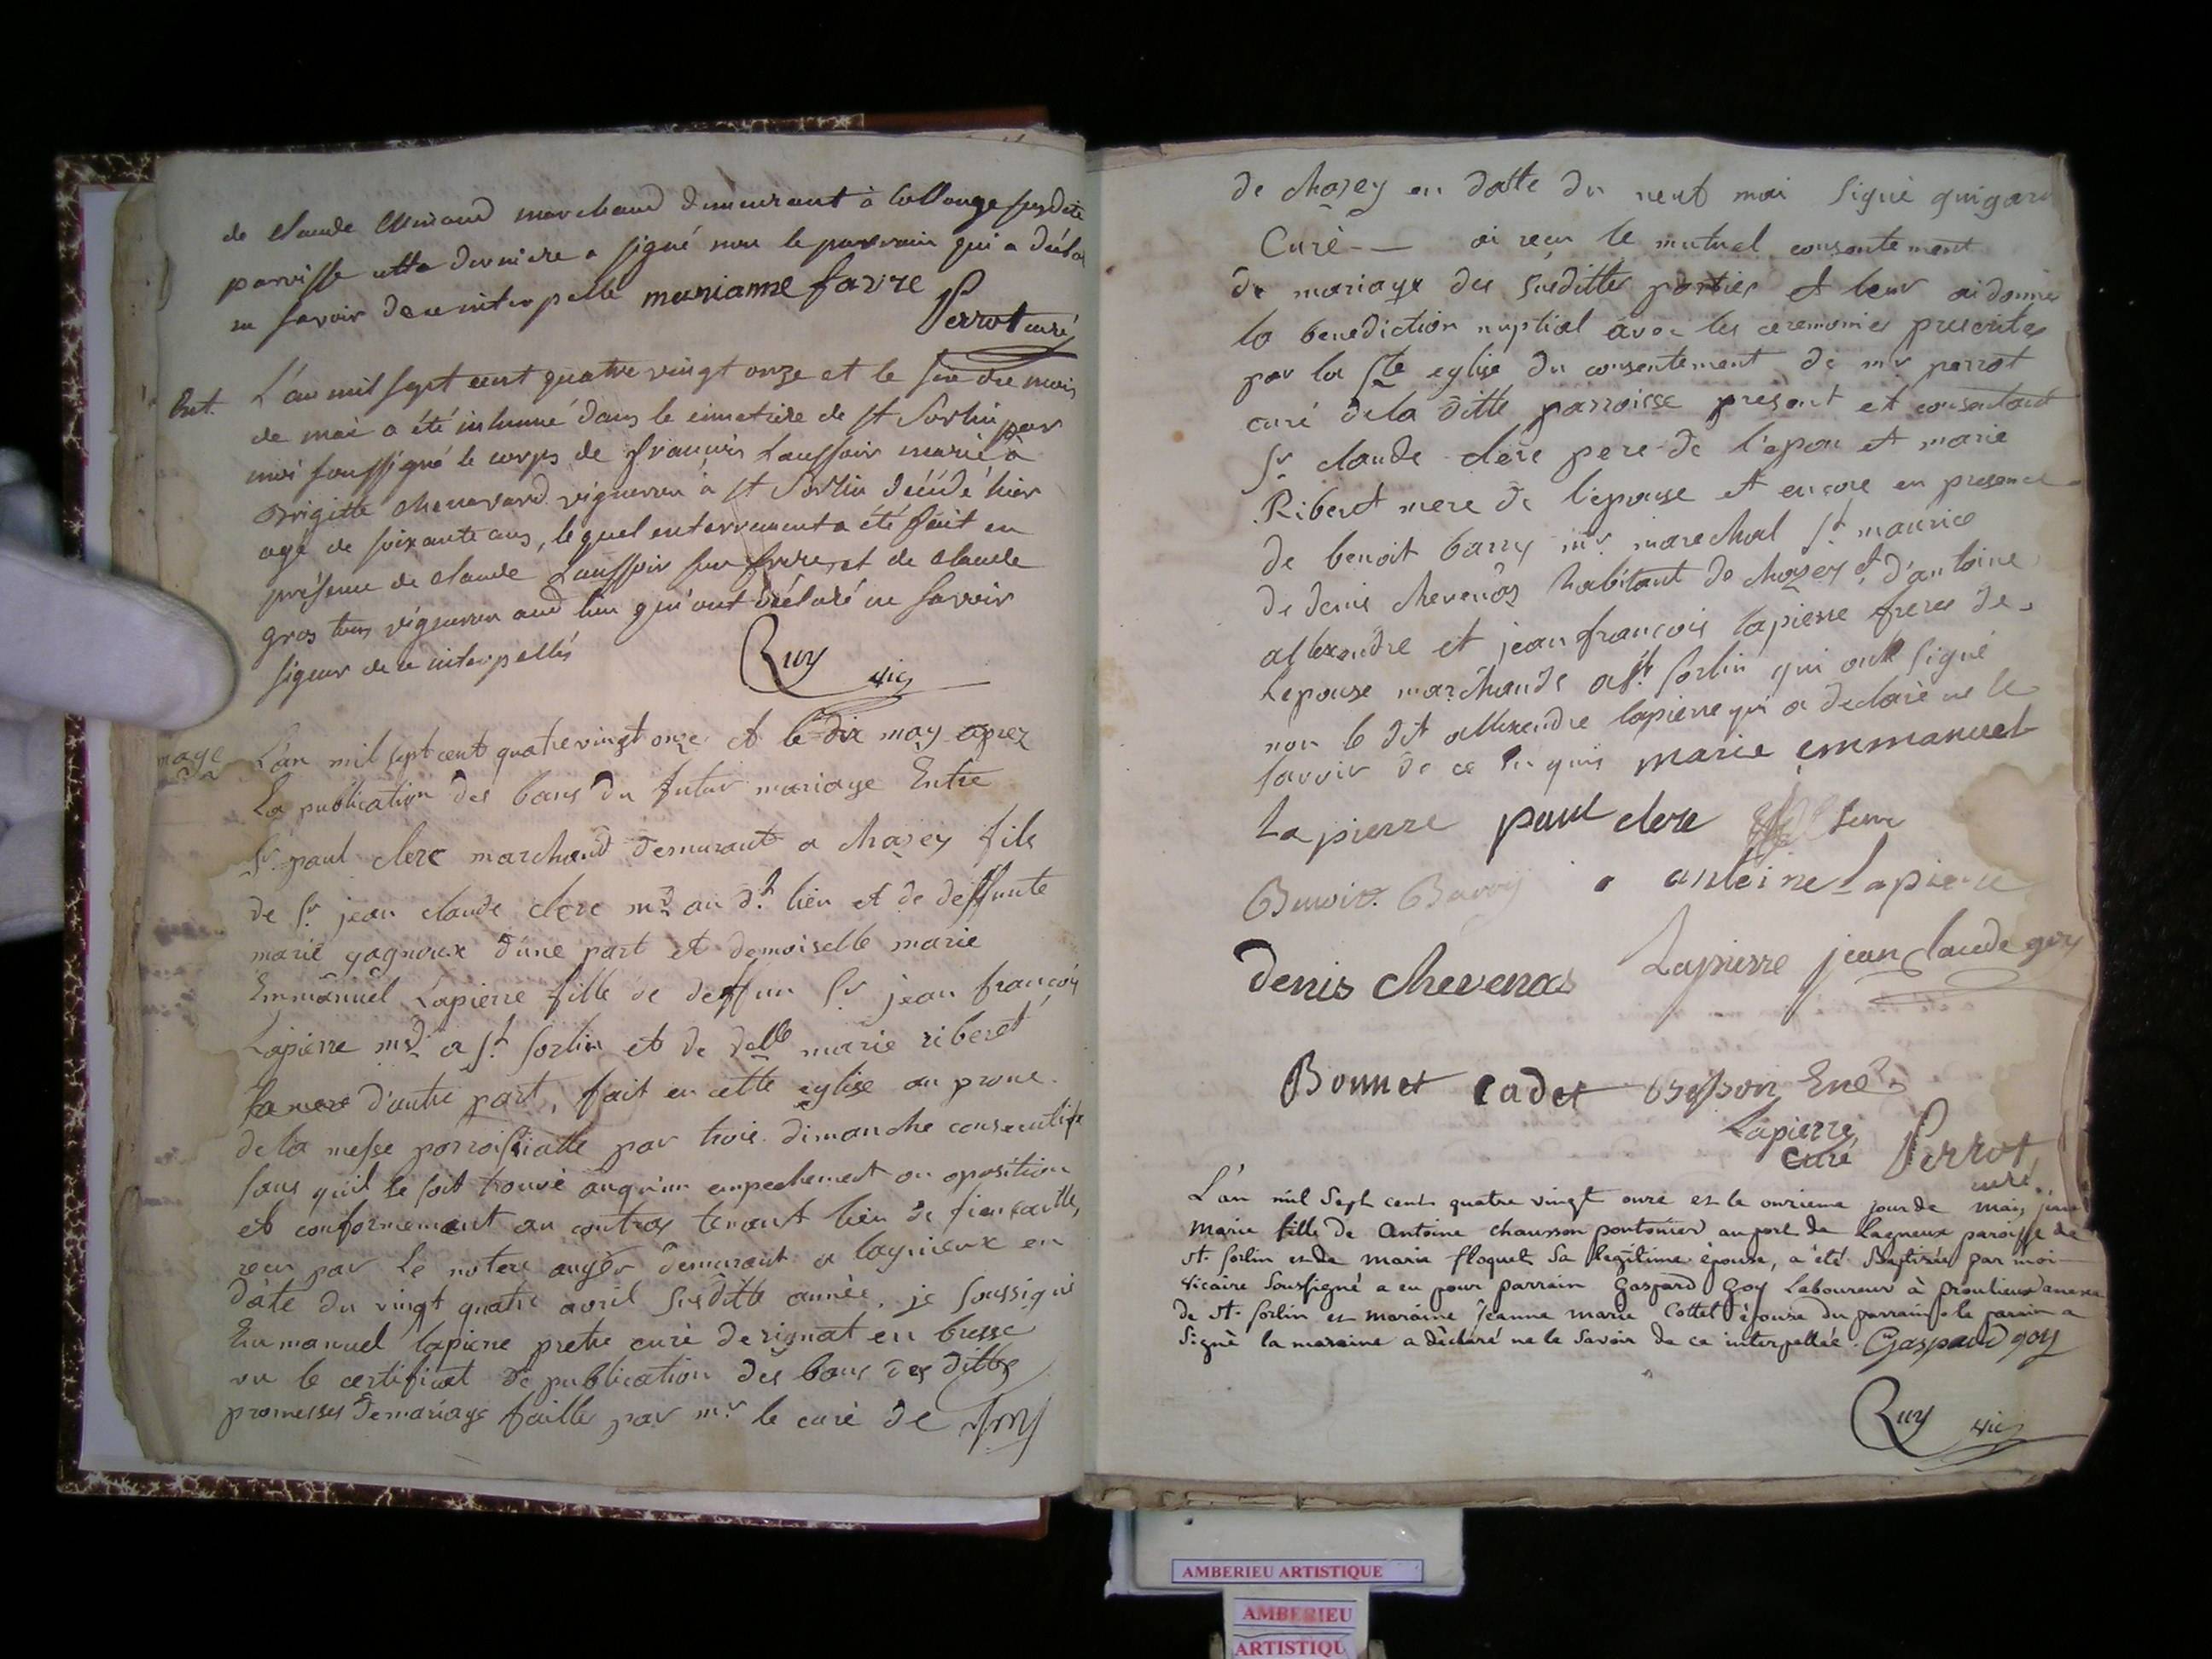 de claude Clemend marchand demeurant à Collonge susdite
paroisse cette derniere a signé non le parrain qui a déclaré
ne savoir de ce interpellé marianne favre
Perrot curé
Ent. L'an mil sept cent quatre vingt onze et le six du mois
de mai a été inhumé dans le cimetiere de st Sorlin par
moi soussigné le corps de françois Laussoir marié à
Brigitte chenavard vigneron à st Sorlin décédé hier
agé de soixante ans, lequel enterrement a été fait en
présence de claude Laussoir son frere et de claude
gros tous vignerons aud lieu qui ont déclaré ne savoir
signer de ce interpellés
Ruy vic
mage L'an mil sept cent quatre vingt onze et le dix may aprez
La publication des bans du futur mariage Entre
Sr paul clerc marchand demurant a chazey fils
de Sr jean claude clerc md au dt lieu et de deffunte
marie gagnoux d'une part et demoiselle marie
Emmanuel Lapierre fille de deffun Sr jean françois
Lapierre md a st sorlin et de delle marie ribert
sa mere d'autre part, fait en cette eglise au prone
de la messe parroissialle par trois dimanche consecutifs
sans qu'il se soit trouvé auqu'un empechement ou oposition
et conformement au contras tenant lieu de fiencaille,
recu par Le notere auger demurant a lagnieux en
date du vingt quatre avril susditte année, je soussigné
Emmanuel lapierre pretre curé de rignat en bresse
vu le certificat de publication des bans des dittes
promesses de mariage faitte par mr le curé de
de chazey en datte du neuf mai signé guigard
Curé -- ai recu le mutuel consentement
de mariage des susdittes parties et leur ai donner
la benediction nuptial avec les ceremonies prescrites
par la Ste eglise du consentement de mr perrot
curé de la ditte parroisse présent et consentant
Sr claude clerc pere de l'epou et marie
Ribert mere de l'epouse et encore en presence
de benoit barry mr. marechal st maurice
de denis chevenas habitant de chazey et d'antoine
allexandre et jean françois lapierre freres de
Lepouse marchands a st sorlin qui ont signé
non le dit allexandre lapierre qui a déclaré ne le
savoir de ce enquis marie emmanuel
Lapierre paul clerc
Benoit Barry antoine Lapierre
denis chevenas Lapierre jean claude goy
Bonnet cadet Besson
Lapierre
curé Perrot
curé.
L'an mil sept cent quatre vingt onze et le onzieme jour de mai, jeanne
Marie fille de Antoine chausson pontonier au port de Lagneux paroisse de
st. sorlin et de Marie floquet sa legitime épouse, a été Baptisée par moi
vicaire soussigné a eu pour parrain Gaspard Goy Laboureur à Proulieux annexe
de st. sorlin et maraine Jeanne marie Cottet épouse du parrain. le parrin a
signé la maraine a déclaré ne le savoir de ce interpellée. Gaspard goy
Ruy vic
AMBERIEU ARTISTIQUE
AMBERIEU
ARTISTIQU